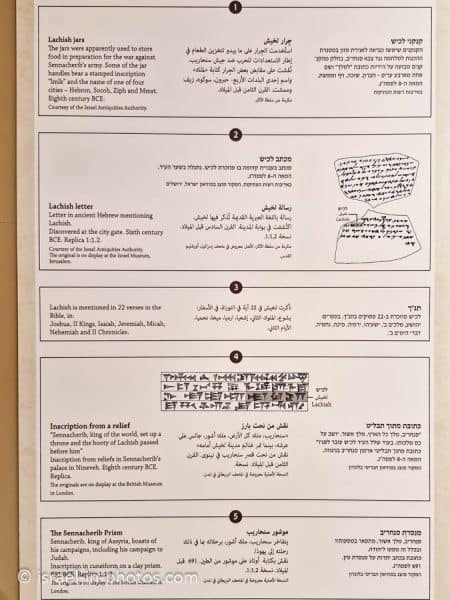 1
Lachish jars
The jars were apparently used to store
food in preparation for the war against
Sennacherib's army. Some of the jar
handles bear a stamped inscription
"lmlk" and the name of one of four
cities – Hebron, Socoh, Ziph and Mmst.
Eighth century BCE.
Courtesy of the Israel Antiquities Authority.
جرار لخيش
استُخدمت الجرار على ما يبدو لتخزين الطعام في
إطار الاستعدادات للحرب ضد جيش سنحاريب.
نُقشت على مقابض بعض الجرار كتابة «ملك»
واسم إحدى البلدات الأربع: حبرون، سوكوه، زيف
وممشت. القرن الثامن قبل الميلاد.
مكرمة من سلطة الآثار.
קנקני לכיש
הקנקנים שימשו כנראה לאגירת מזון במסגרת
ההכנות למלחמה נגד צבא סנחריב. בחלק
טבועה על הידיות כתובת "למלך" ושם
אחת מארבע ערים - חברון, שוכה, זיף וממשת.
המאה ה-8 לפסה"נ.
באדיבות רשות העתיקות
2
Lachish letter
Letter in ancient Hebrew mentioning
Lachish.
Discovered at the city gate. Sixth century
BCE. Replica 1:1.2.
Courtesy of the Israel Antiquities Authority.
The original is on display at the Israel Museum,
Jerusalem.
מכתב לכיש
מכתב בעברית קדומה בו מוזכרת לכיש. נתגלה בשער העיר.
המאה ה-6 לפסה"נ.
באדיבות רשות העתיקות. המקור מוצג במוזיאון ישראל, ירושלים
رسالة لخيش
رسالة باللغة العبرية القديمة تُذكر فيها لخيش.
اكتُشفت في بوابة المدينة. القرن السادس قبل الميلاد.
نسخة 1:1.2.
مكرمة من سلطة الآثار. الأصل معروض في متحف إسرائيل، أورشليم
القدس
לכיש
لخيش
Lachish
3
Lachish is mentioned in 22 verses in the
Bible, in:
Joshua, II Kings, Isaiah, Jeremiah, Micah,
Nehemiah and II Chronicles.
ذُكرت لخيش في 22 آية في التوراة، في الأسفار:
يشوع، الملوك الثاني، إشعيا، إرميا، ميخا، نحميا،
الأيام الثاني.
תנ"ך
לכיש מוזכרת ב-22 פסוקים בתנ"ך, בספרים:
יהושע, מלכים ב', ישעיהו, ירמיה, מיכה, נחמיה,
דברי הימים ב'.
4
לכיש
لخيش
Lachish
Inscription from a relief
"Sennacherib, king of the world, set up a
throne and the booty of Lachish passed
before him"
Inscription from reliefs in Sennacherib's
palace in Nineveh. Eighth century BCE.
Replica.
The originals are on display at the British Museum
in London.
نقش من نحت بارز
«سنحاريب، ملك كل الأرض، ملك آشور، جالس على
عرشه، بينما تمر غنائم مدينة لخيش أمامه»
نقش من نحت قصر سنحاريب في نينوى. القرن
الثامن قبل الميلاد. نسخة.
النسخة الأصلية معروضة في المتحف البريطاني في لندن.
כתובת מתוך תבליט
"סנחריב, מלך כל הארץ, מלך אשור, יושב על
כס מלכותו, בעוד שלל העיר לכיש עובר לפניו"
כתובת מתוך תבליטי ארמון סנחריב בנינוה.
המאה ה-8 לפסה"נ.
המקור מוצג במוזיאון הבריטי בלונדון
5
The Sennacherib Prism
Sennacherib, king of Assyria, boasts of
his campaigns, including his campaign to
Judah.
Inscription in cuneiform, on a clay prism.
691 BCE. Replica 1:1.2.
موشور سنحاريب
يتفاخر سنحاريب، ملك آشور، برحلاته بما في ذلك
رحلته إلى يهودا.
نقش بكتابة أوتاد على موشور من الطين. 691 قبل
الميلاد. نسخة 1:1.2.
النسخة الأصلية معروضة في المتحف البريطاني في لندن.
מנסרת סנחריב
סנחריב, מלך אשור, מתפאר במסעותיו
ובכלל זה מסעו ליהודה.
כתובת בכתב יתדות על מנסרת טין.
691 לפסה"נ.
המקור מוצג במוזיאון הבריטי בלונדון
© israel-in-photos.com